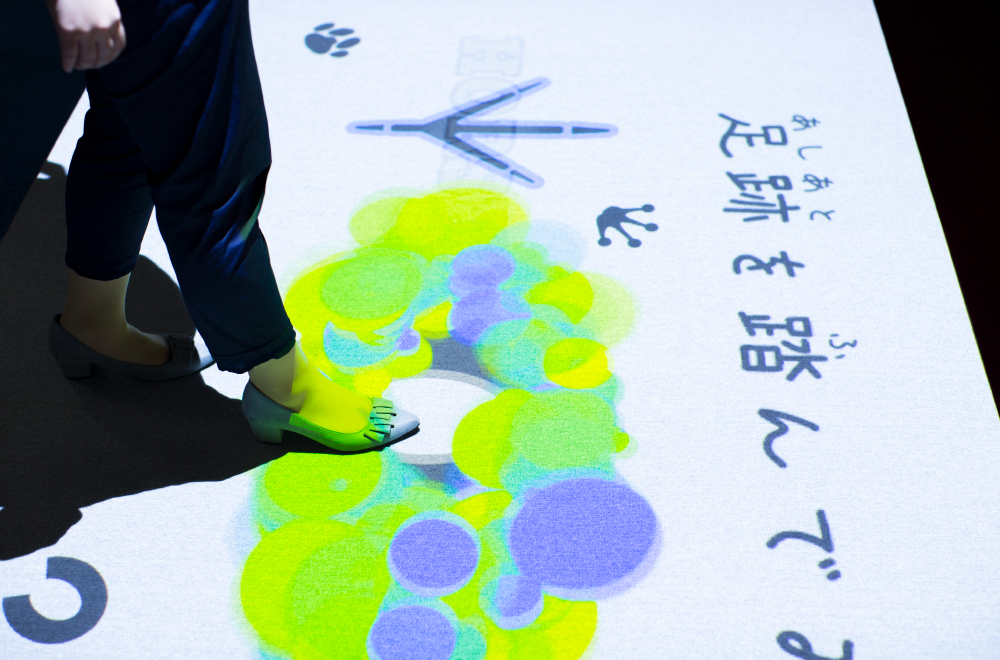 あしあと ふ
足跡を踏んでみ